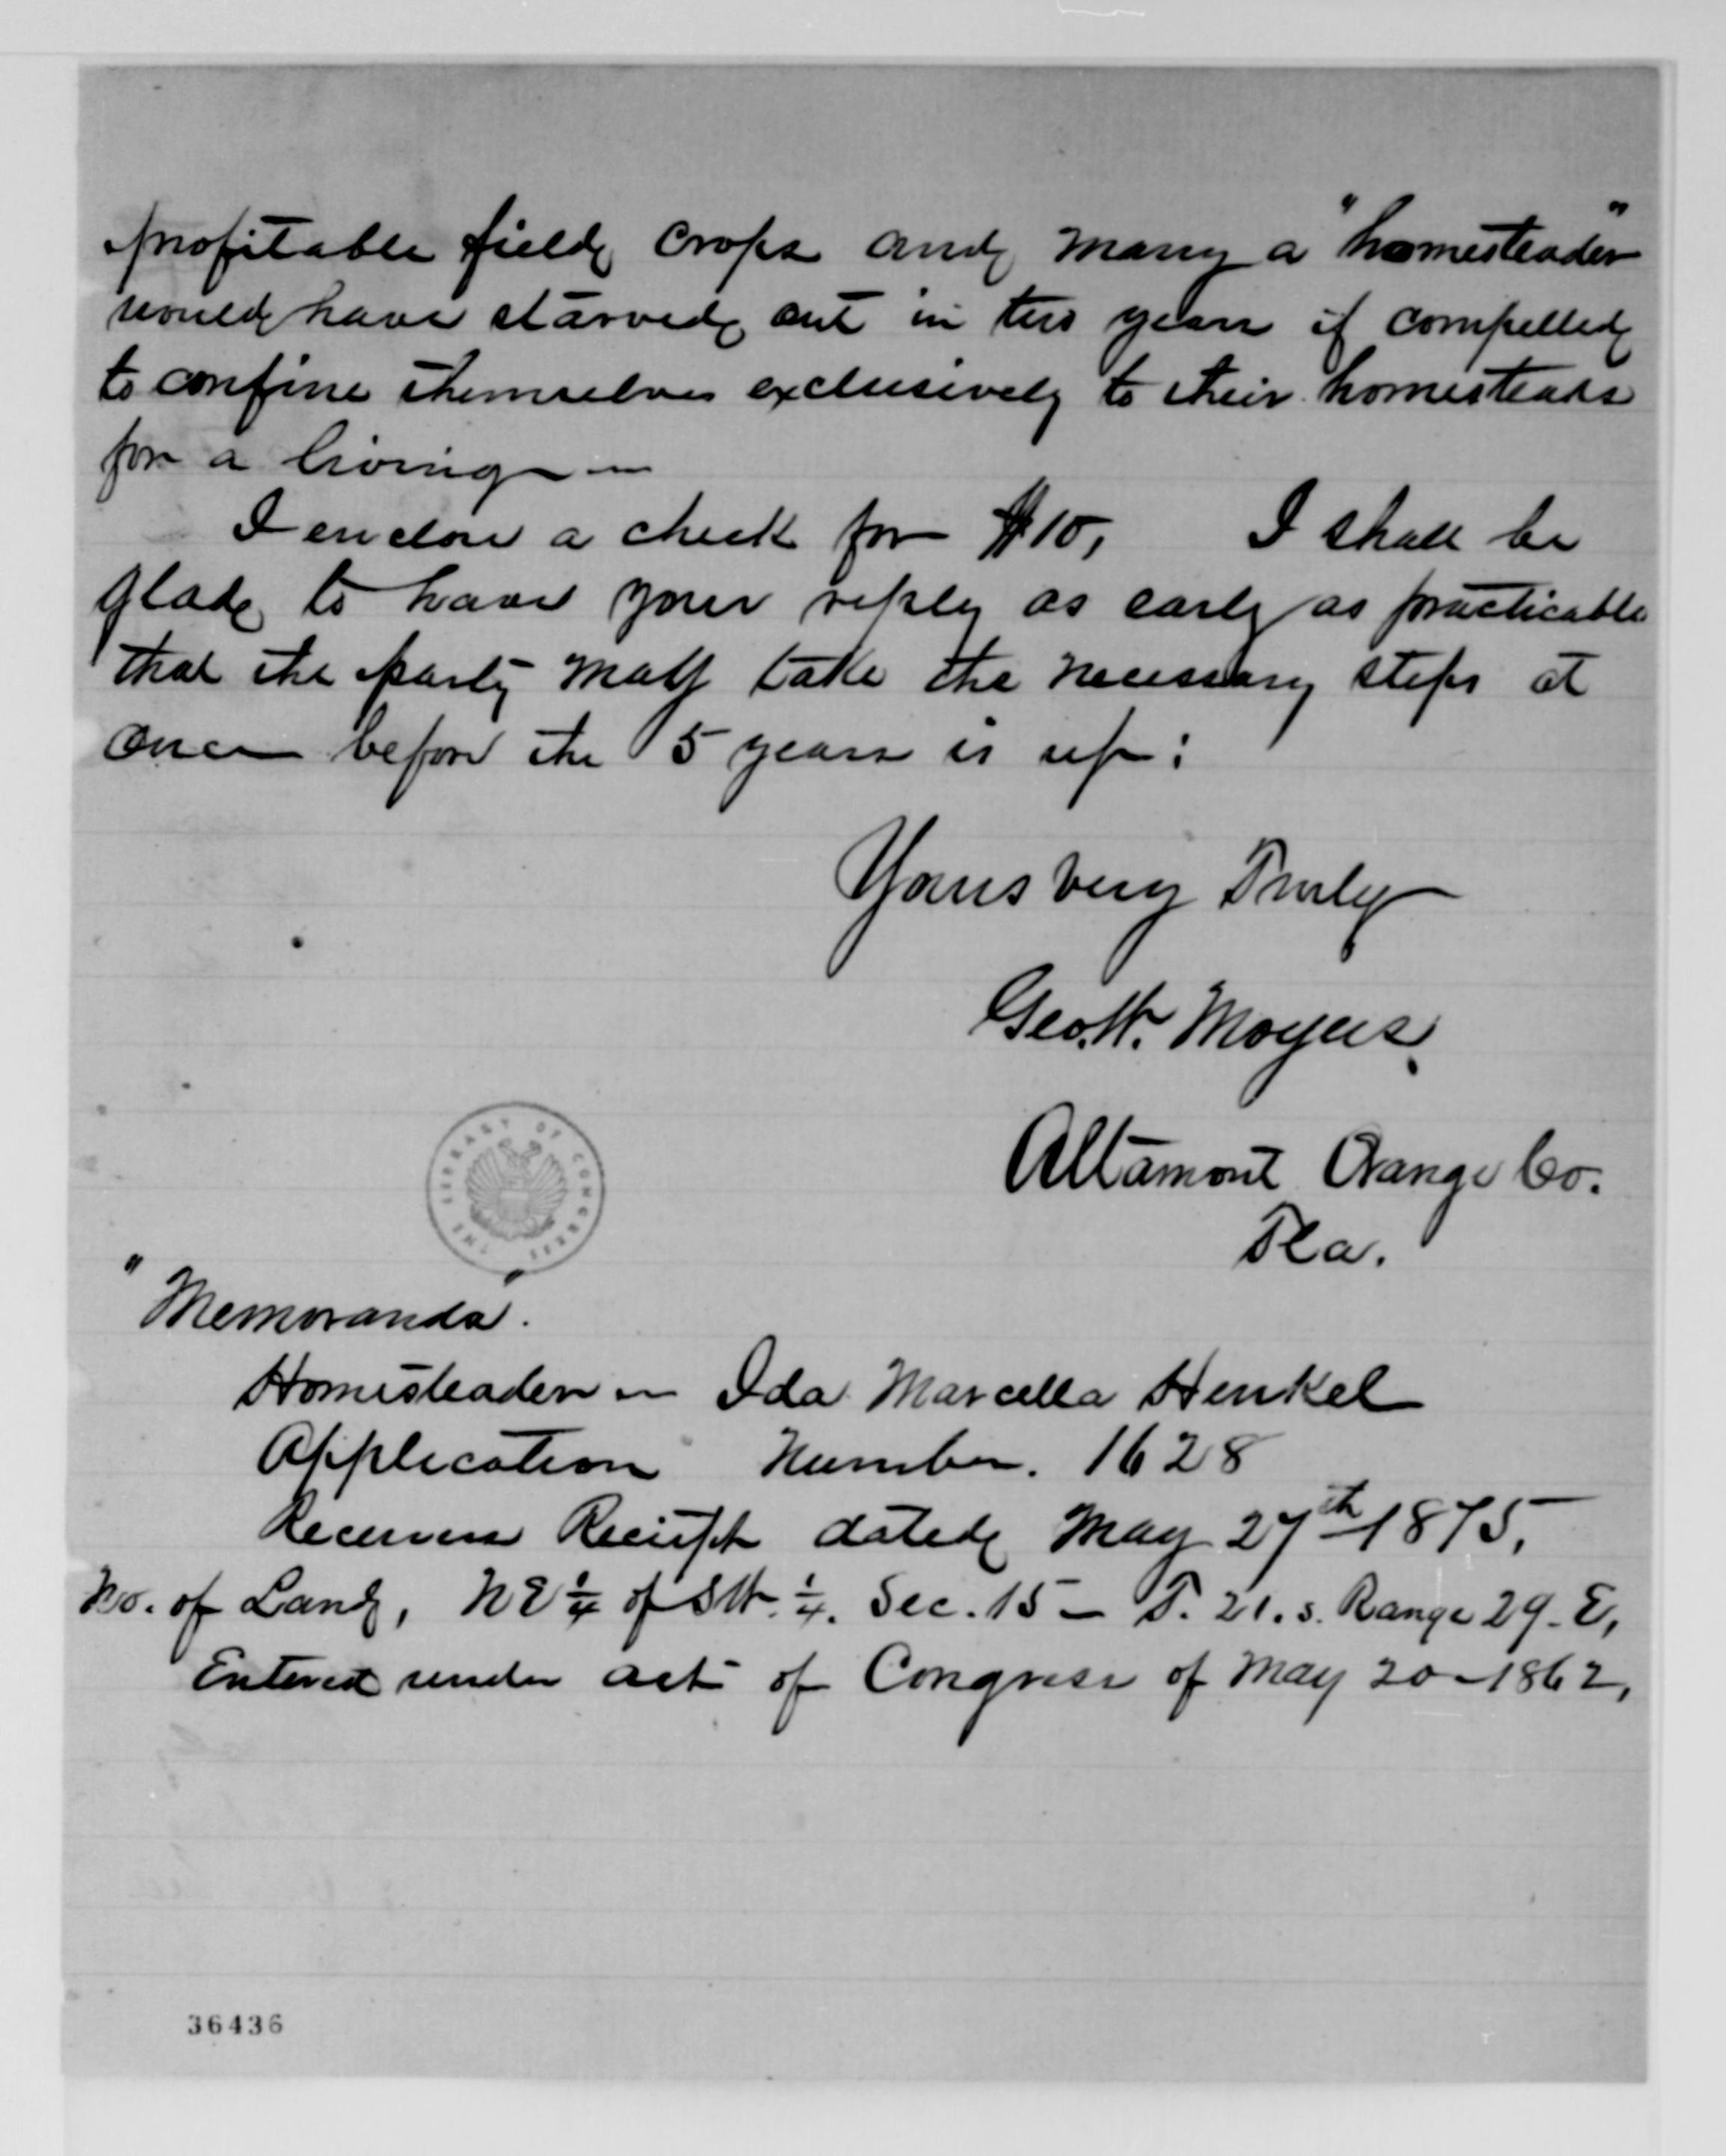 profitable field crops and many a "homesteader"
would have starved out in two years if compelled
to confine themselves exclusively to their homesteads
for a living —
I enclose a check for $10, I shall be
glad to have your reply as early as practicable
that the party may take the necessary steps at
once before the 5 years is up:
Yours very Truly
Geo. W. Moyers.
Altamont Orange Co.
Fla.
THE LIBRARY OF CONGRESS
"Memoranda".
Homesteader — Ida Marcella Henkel
Application Number. 1628
Receivers Receipt dated May 27th 1875,
No. of Land, NE ¼ of SW. ¼. Sec. 15 — T. 21. s. Range 29. E,
Entered under act of Congress of May 20 — 1862,
36436